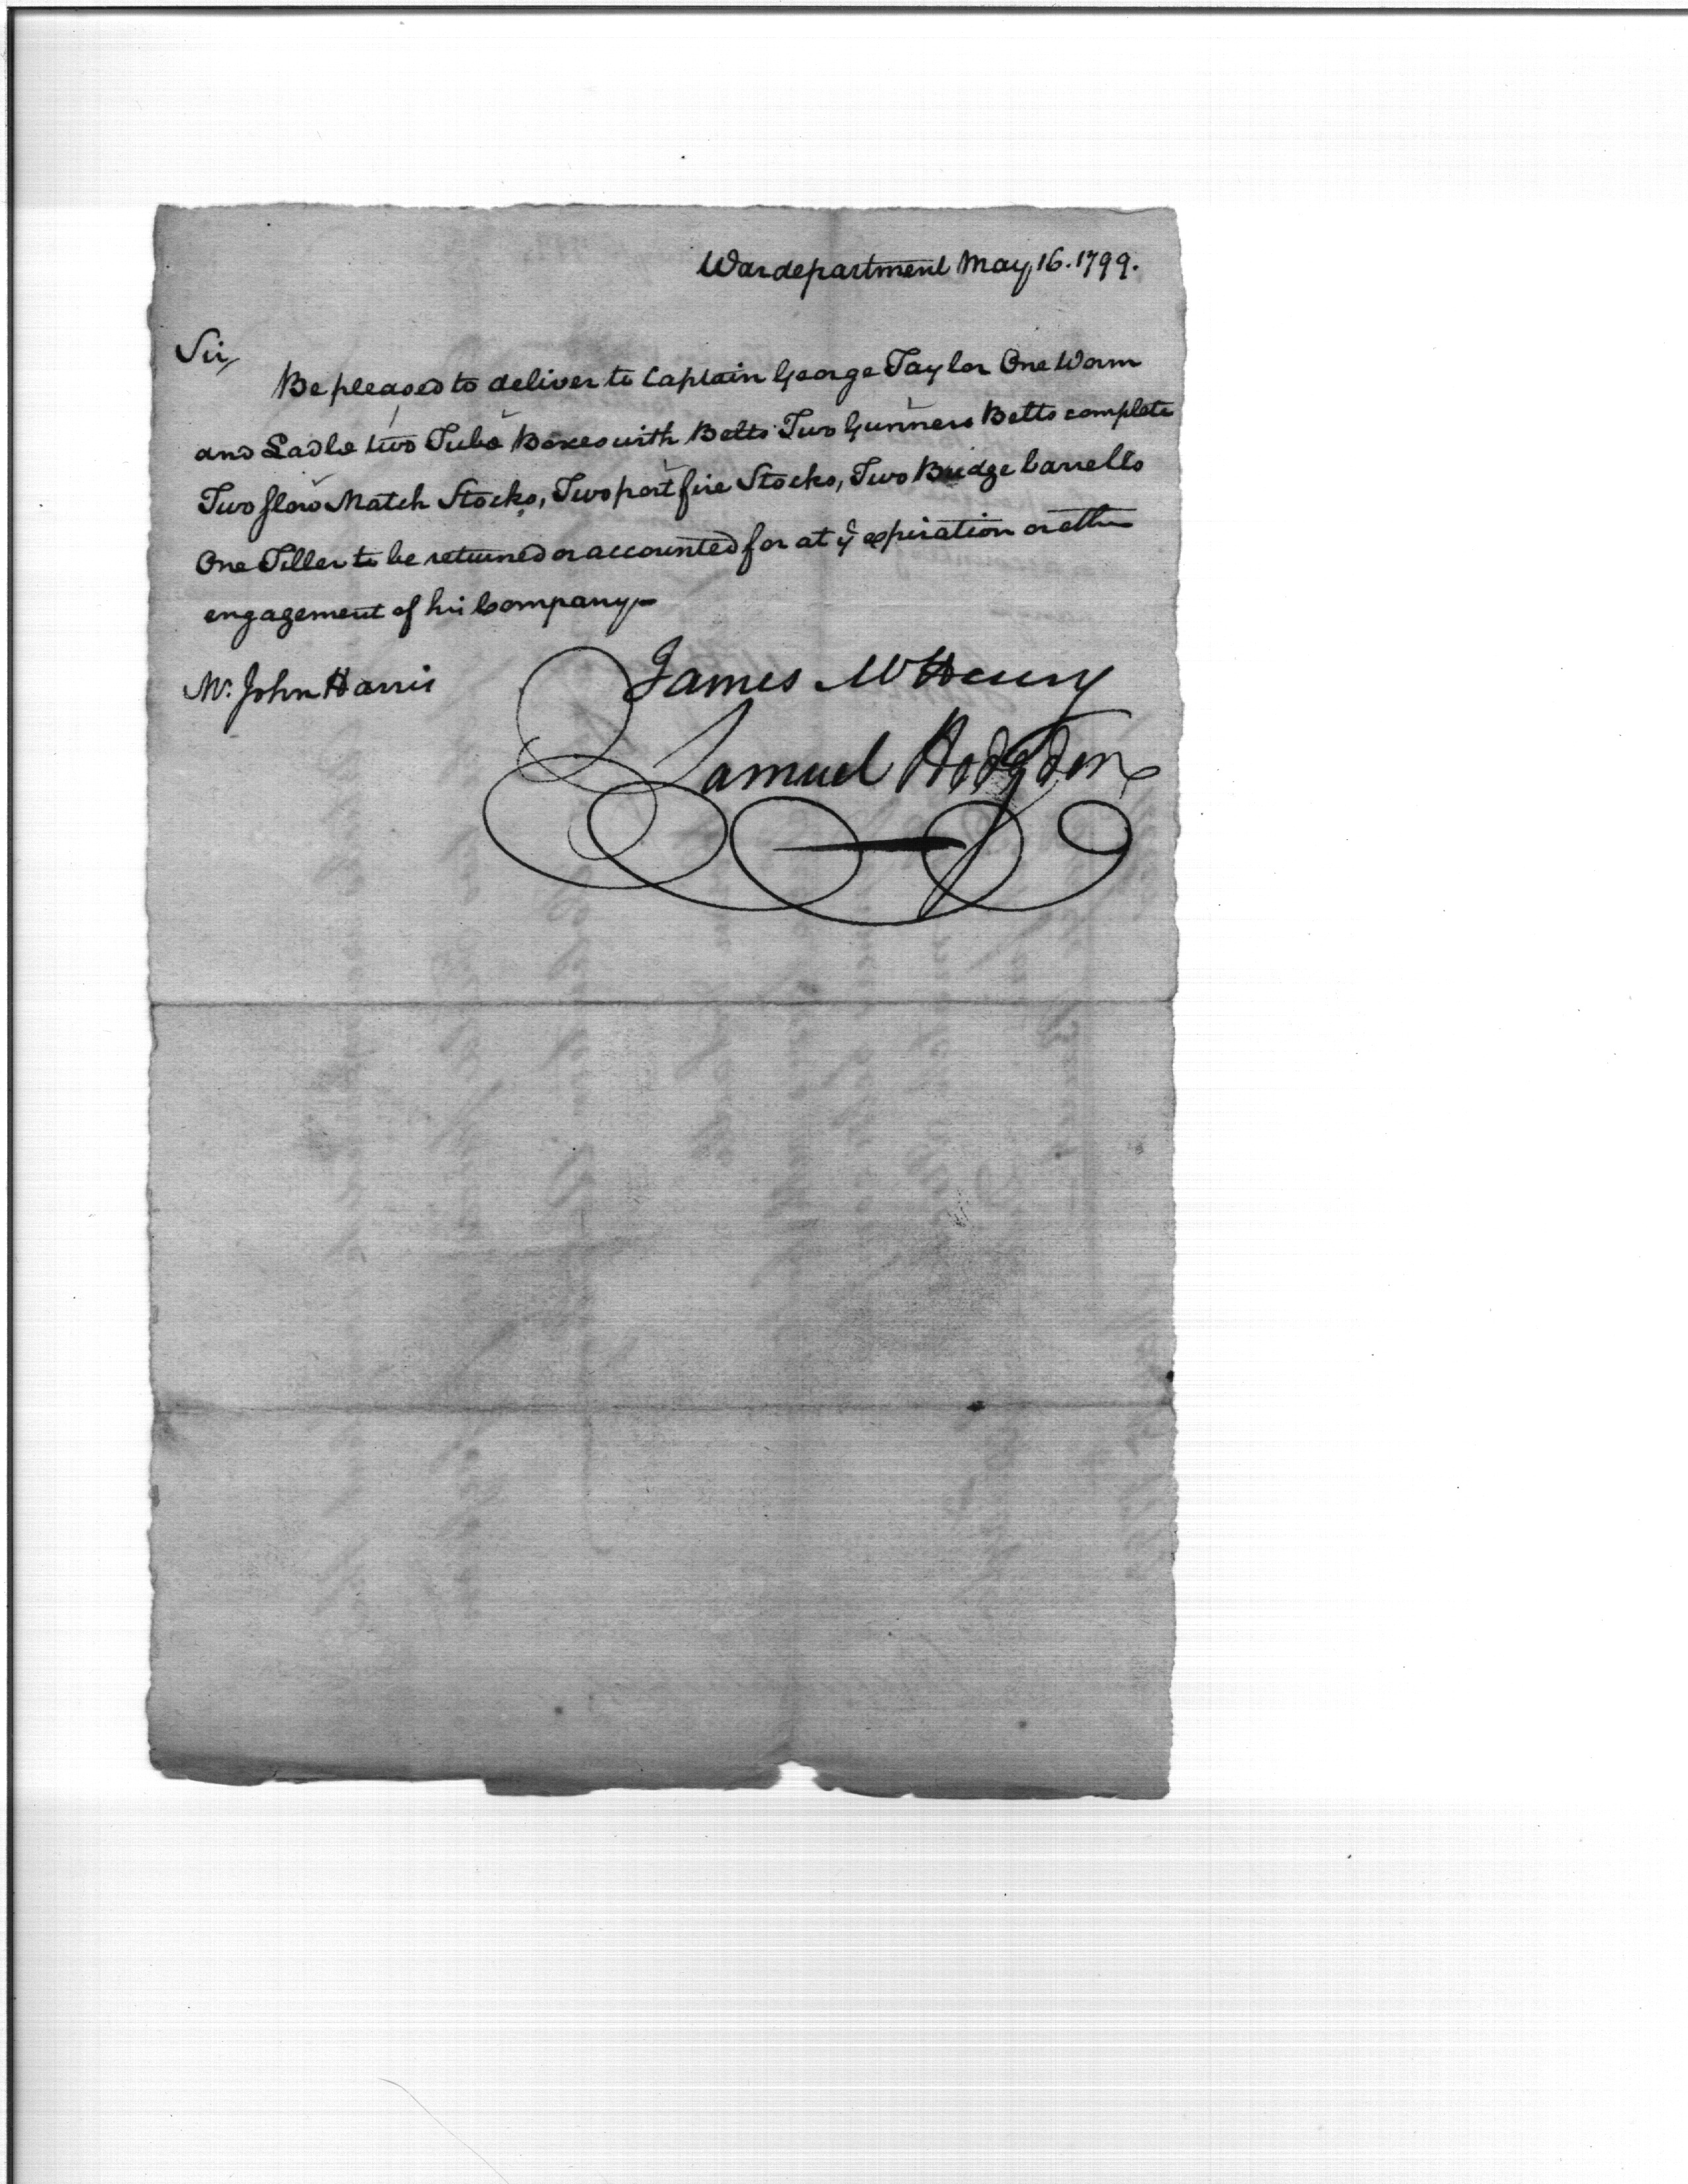 War department May, 16. 1799.
Sir,
Be pleased to deliver to Captain George Taylor One Worm
and Ladle two Tube Boxes with Belts Two Gunners Belts complete
Two slow Match Stocks, Two port fire Stocks, Two Budge barrells
One Tiller to be returned or accounted for at ye expiration or the
engagement of his Company—
Mr. John Harris
James McHenry
Samuel Hodgdon